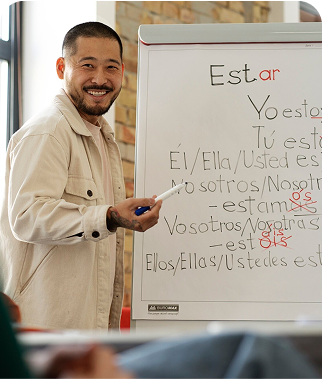 Estar
Yo estoy
Tú está
Él/Ella/Usted es
Nosotros/Nosotr
-estam
os
Vosotros/Nosotras
-est
áis
Ellos/Ellas/Ustedes est